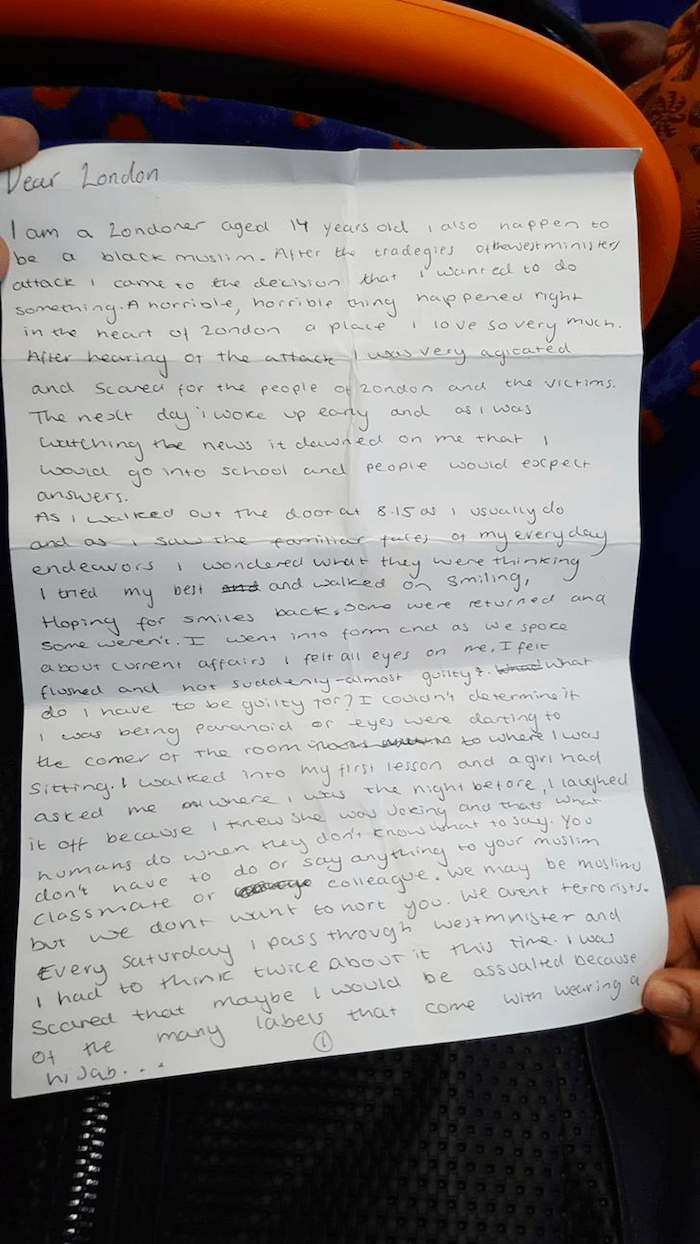 Dear London
I am a Londoner aged 14 years old i also happen to
be a black muslim. After the tradegies of thewestministers
attack I came to the decision that i wanted to do
something. A horrible, horrible thing happened right
in the heart of London a place i love so very much.
After hearing of the attack I was very agitated
and scared for the people of London and the victims.
The next day i woke up early and as i was
watching the news it dawned on me that I
would go into school and people would expect
answers.
As i walked out the door at 8.15 as i usually do
and as i saw the familiar faces of my everyday
endeavors i wondered what they were thinking
I tried my best and and walked on smiling,
Hoping for smiles back. some were returned and
some weren't. I went into form and as we spoke
about current affairs i felt all eyes on me. I felt
flushed and hot suddenly - almost guilty?. what what
do i have to be guilty for? I couldn't determine if
i was being paranoid or eyes were darting to
the corner of the room to where I was
sitting. I walked into my first lesson and a girl had
asked me where i was the night before, I laughed
it off because i knew she was joking and thats what
humans do when they don't know what to say. You
don't have to do or say anything to your muslim
classmate or colleague. We may be muslims
but we dont want to hurt you. We arent terrorists.
Every saturday i pass through westminister and
I had to think twice about it this time. I was
scared that maybe i would be assualted because
of the many labels that come with wearing a
hijab...
1